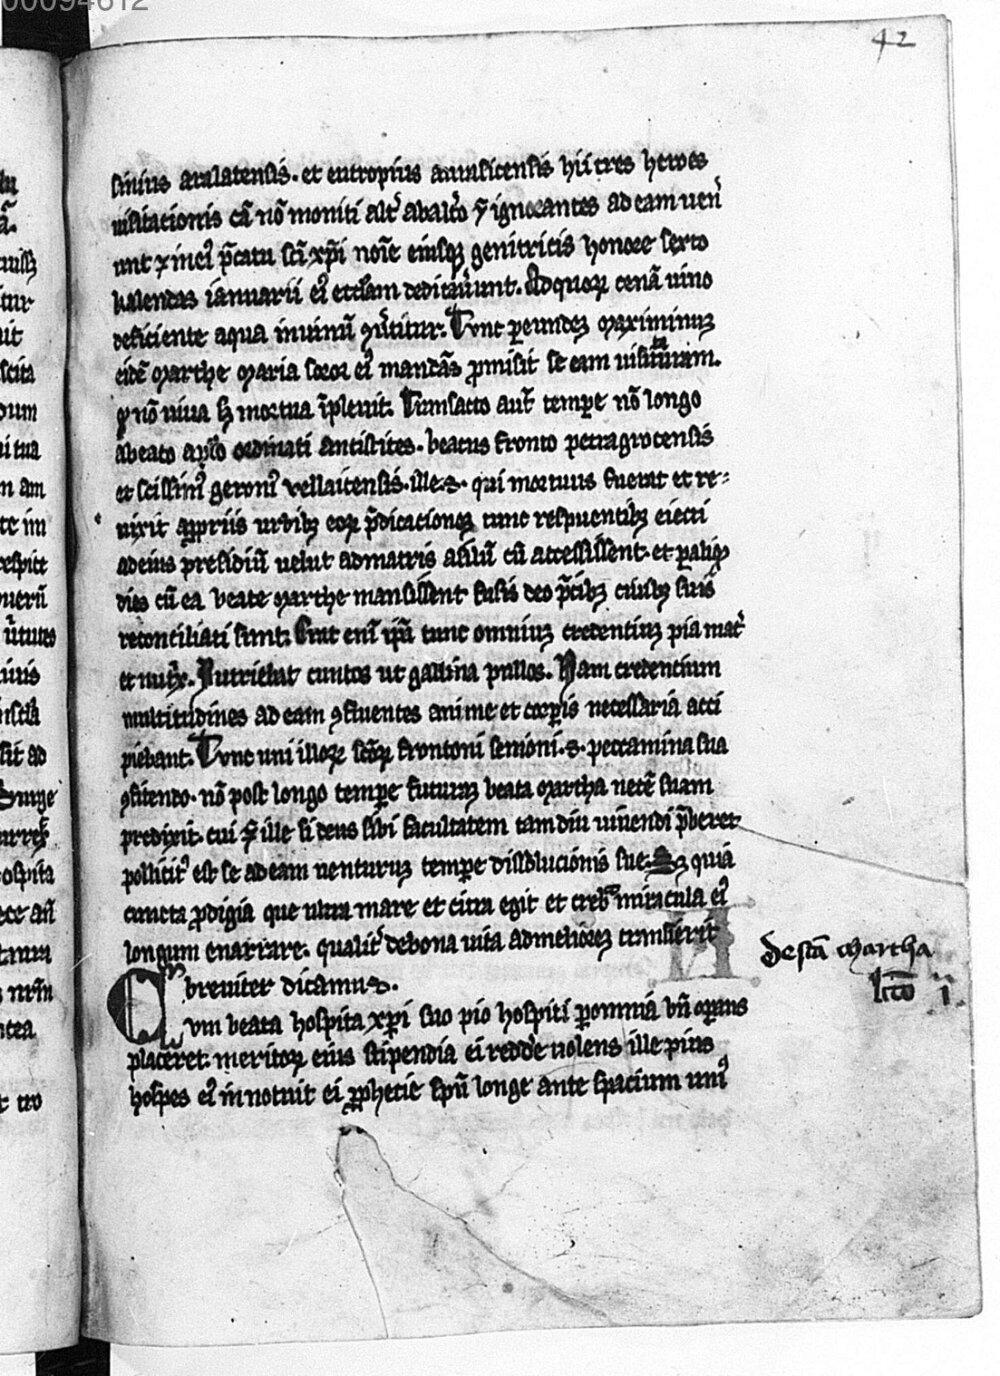 00094612
42
simus aralatensis. et eutropius aurasicensis hii tres heroes
uisitacionis cā nō moniti alt̄ ab alt̄o ⁊ ignorantes ad eam uen̄
unt ⁊ in eiꝰ p̄catu sc̄i xp̄i noīe eiusqꝫ genitricis honore sexto
kalendas ianuarii eiꝰ eccl̄am dedicauerunt. Ad quoꝝ cenā uino
deficiente aqua in uinū ꝯuertitur. Tunc
eidē marthe maria soror eiꝰ mandās ꝓmisit se eam uisituram.
nō uiua sꝫ mortua īpleuit. Transacto aut̄ tempore nō longo
a beato ordinati antistites. beatus fronto petragrocensis
et georgiꝰ vellaicensis. ille .s. qui mortuus fuerat et re
uixit a ꝓpriis urbibꝫ eoꝝ p̄dicacionem tunc respuentibꝫ eiecti
ad eius presidiū uelut ad matris asilū cū accessissent. et ꝑ aliqꝫ
dies cū ea beate marthe mansissent fusis deo p̄cibꝫ ciuibꝫ suis
reconciliati sunt. Erat eni ip̄a tunc omniuꝫ credentiuꝫ pia mat̄
et nut̄x. Nutriebat cunctos ut gallina pullos. Nam credencium
multitudines ad eam ꝯfluentes anime et corꝑis necessaria acci
piebant. Tunc uni illoꝝ sc̄oꝝ frontoni .s. peccamina sua
ꝯfitendo. nō post longo tempore futuraꝫ beata martha necē suam
predixit. cui ⁊ ille si deus sibi facultatem tam diu uiuendi p̄beret
pollicitꝰ est se ad eam uenturuꝫ tempore dissolucionis sue. Sꝫ quia
cuncta ꝓdigia que ultra mare et citra egit et creb̄ miracula eiꝰ
longum enarrare. qualit̄ de bona uita ad melioreꝫ transierit
breuiter dicamus.
Cum beata hospita xp̄i suo pio hospiti ꝑ omnia bn̄ oꝑans
placeret. meritoꝝ eius stipendia ei reddere uolens ille pius
hospes eiꝰ innotuit ei ꝓphecie spū longe ante spacium uniꝰ
de sct̄a martha
lctō i.